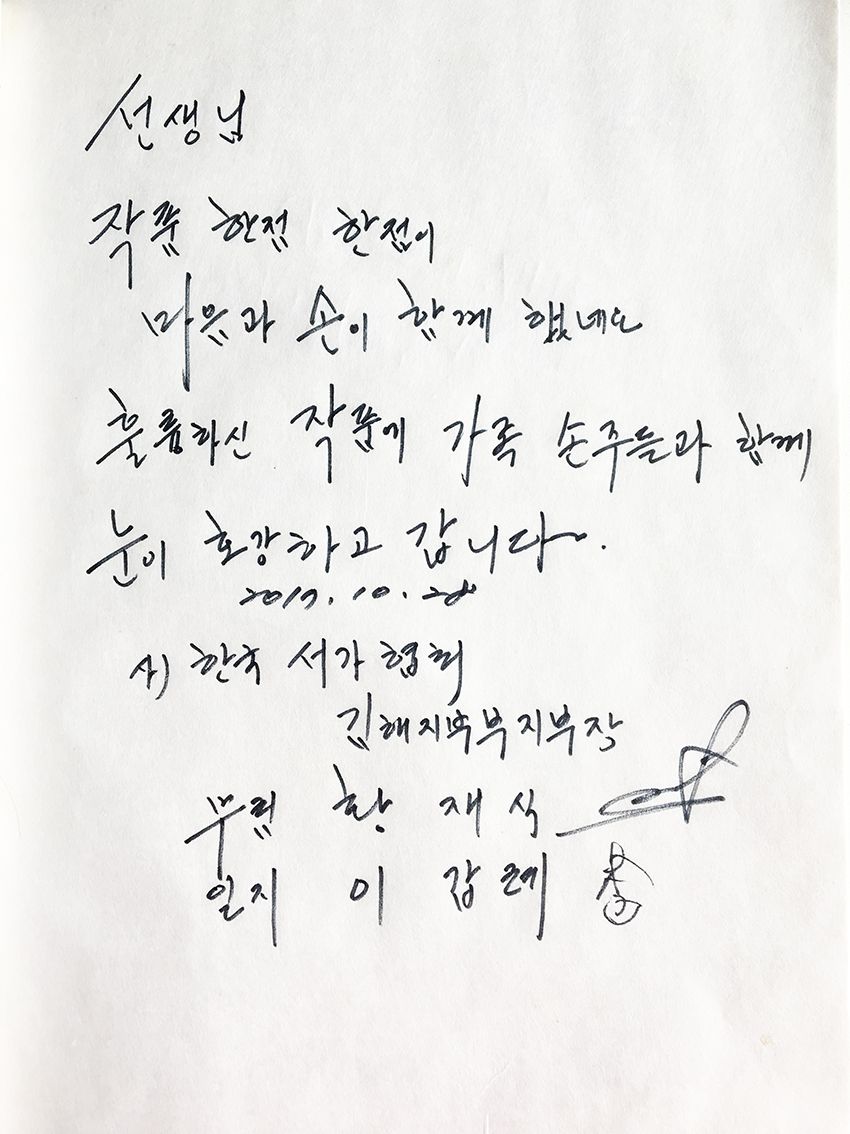 선생님
작품 한점 한점이
마음과 손이 함께 했네요
훌륭하신 작품에 가족 손주들과 함께
눈이 호강하고 갑니다.
2017. 10. 28
사) 한국 서가협회
김해지부지부장
무림 황재식
일지 이갑례